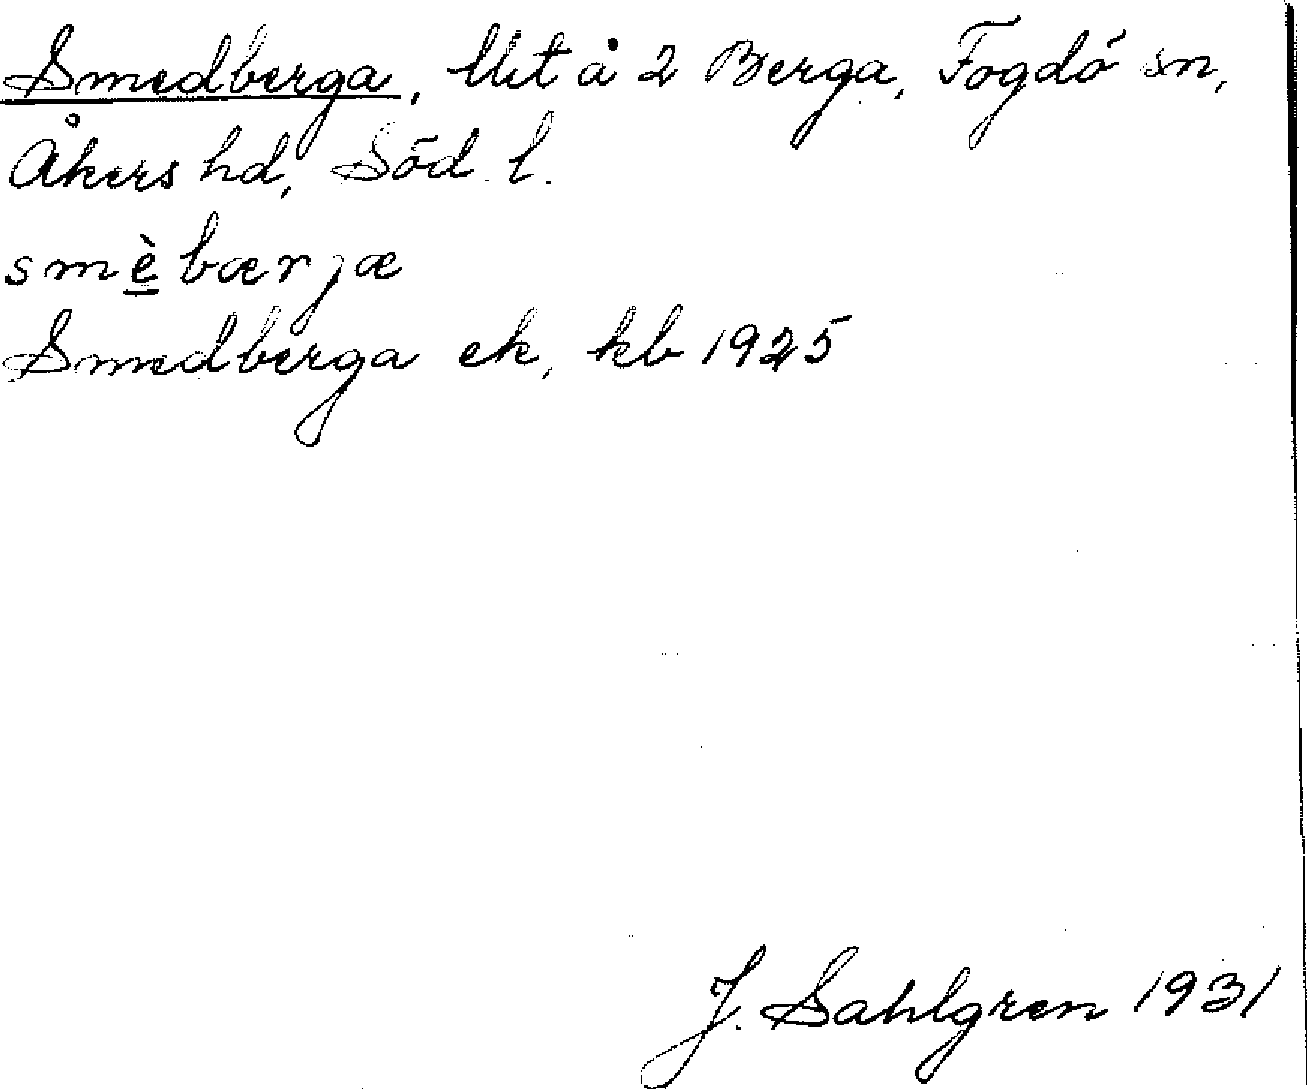 Smedberga, lht å 2 Berga, Fogdö sn,
Åkers hd, Söd. l.
smè̱bærjæ
Smedberga ek, kb 1925
J. Sahlgren 1931